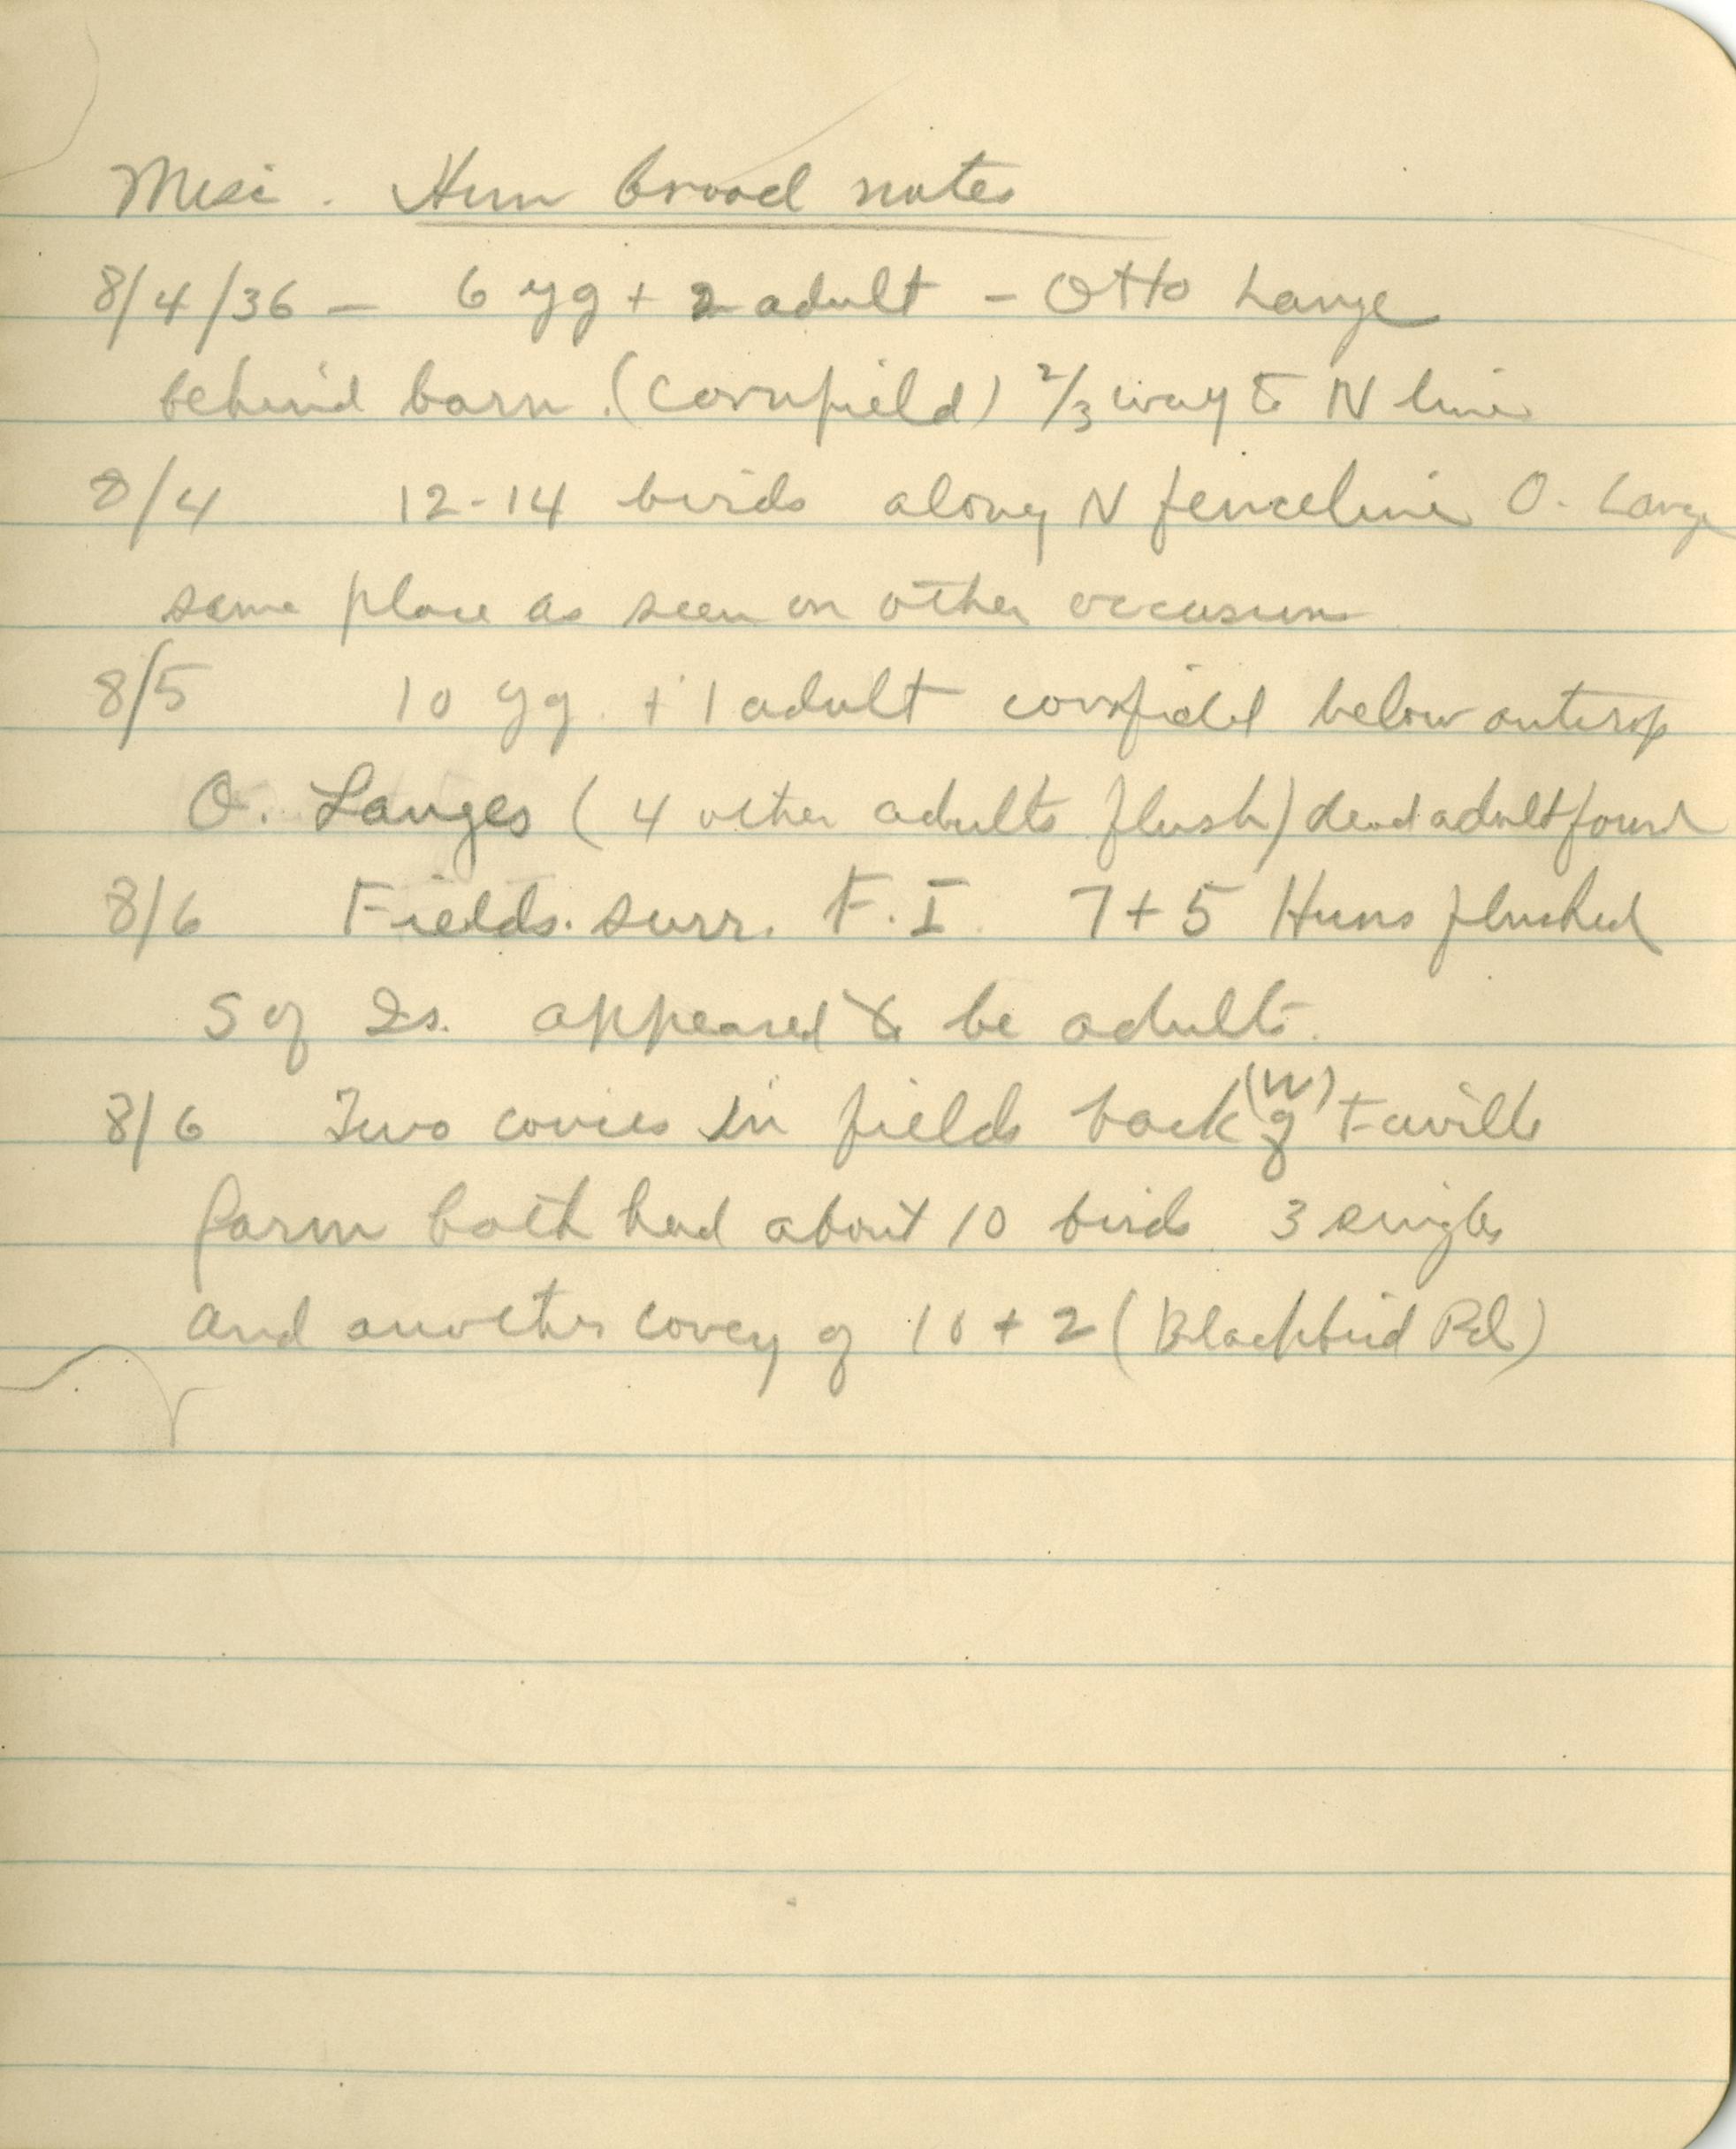 Misc. Hun brood notes
8/4/36 - 6 yg + 2 adult - Otto Lange
behind barn. (cornfield) 2/3 way to N line
8/4 12-14 birds along N fenceline O. Lange
same place as seen on other occasions
8/5 10 yg. + 1 adult cornfield below outcrop
O. Langes (4 other adults flush) dead adult found
8/6 Fields. surr. F.I. 7+5 Huns flushed
5 of appeared to be adults.
8/6 Two covies in fields back (W) of Faville
farm both had about 10 birds 3 singles
and another covey of 10 + 2 (Blackbird Rd)